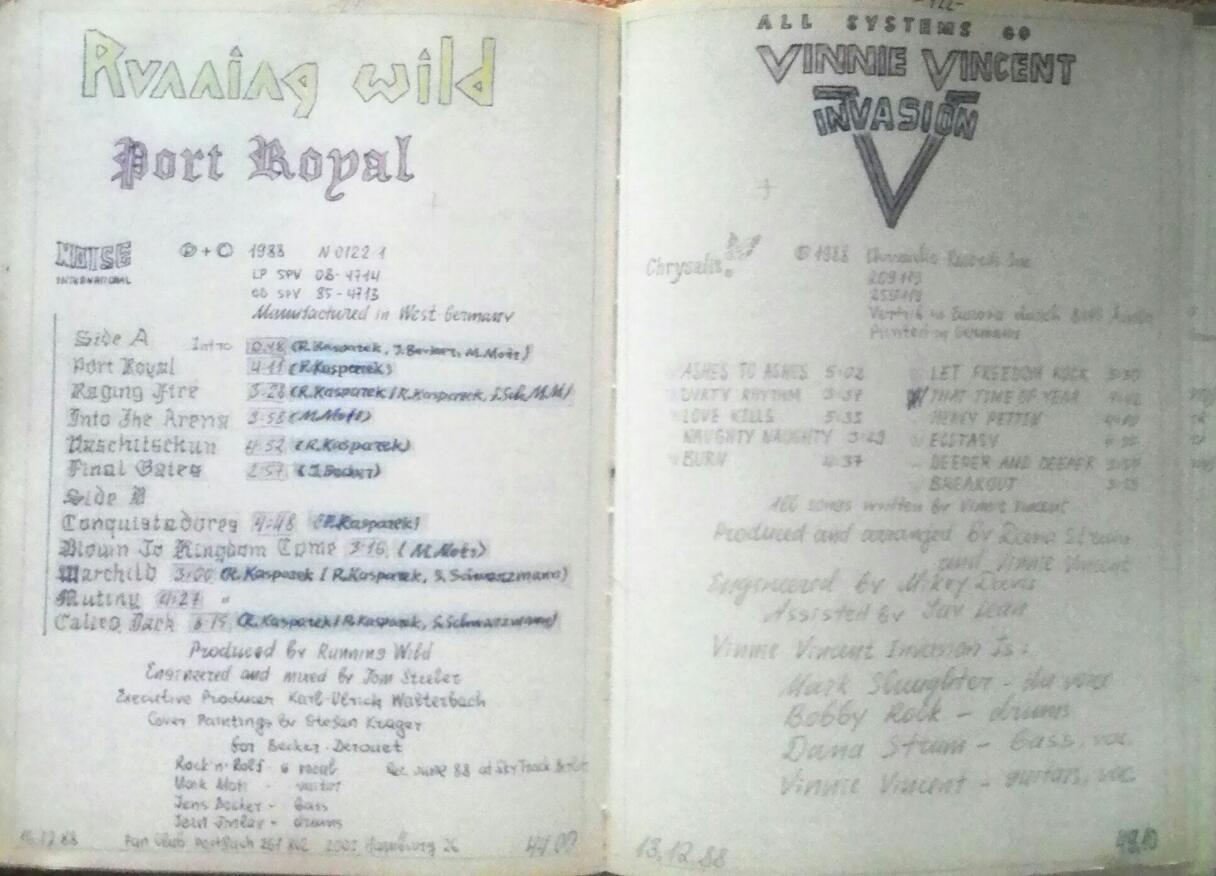 Running wild
Port Royal
NOISE
INTERNATIONAL
℗ + © 1988 N 0122 1
LP SPV 08-4714
CD SPV 85-4713
Manufactured in West-Germany
Side A Intro 0:48 (R. Kasparek, J. Becker, M. Moti)
Port Royal 4:11 (R. Kasparek)
Raging Fire 3:28 (R. Kasparek / R. Kasparek, S. Sch, M.M)
Into The Arena 3:53 (M. Moti)
Uaschitschun 4:52 (R. Kasparek)
Final Gates 2:57 (J. Becker)
Side B
Conquistadores 4:48 (R. Kasparek)
Blown To Kingdom Come 3:16 (M. Moti)
Warchild 3:00 (R. Kasparek / R. Kasparek, S. Schwarzmann)
Mutiny 4:27 "
Calico Jack 8:15 (R. Kasparek / R. Kasparek, S. Schwarzmann)
Produced by Running Wild
Engineered and mixed by Tom
Executive Producer Karl-Ulrich Walterbach
Cover Paintings by Stefan
for Becker-Derouet
Rock'n'Rolf - G vocal Rec. June 88 at Sky Track Berlin
- guitar
Jens Becker - bass
- drums
12.88 Fan Club Postfach 261 2000 Hamburg 26
-122-
ALL SYSTEMS GO
VINNIE VINCENT
INVASION
Chrysalis © 1988 Chrysalis Records Inc
209 119
259 119
Printed in Germany
ASHES TO ASHES 5:02 LET FREEDOM ROCK
DIRTY RHYTHM 3:37 THAT TIME OF YEAR
LOVE KILLS 5:35 HEAVY PETTIN
NAUGHTY NAUGHTY 3:29 ECSTASY
BURN 4:37 DEEPER AND DEEPER
BREAKOUT
All songs written by Vinnie Vincent
Produced and arranged by Dana Strum
and Vinnie Vincent
Engineered by Mikey Davis
Assisted by
Vinnie Vincent Invasion is:
Mark Slaughter - the voice
Bobby Rock - drums
Dana Strum - bass, voc
Vinnie Vincent - guitars, voc
13.12.88